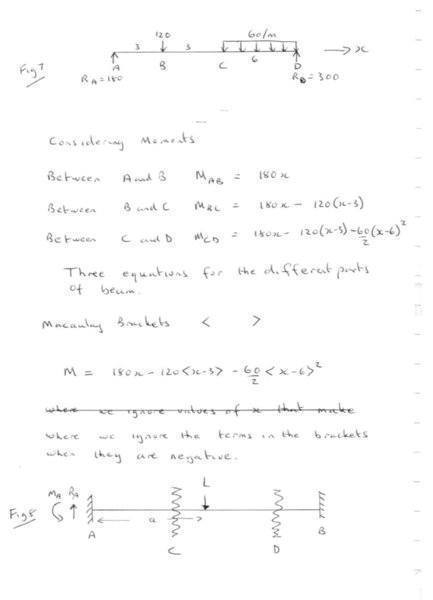 120 60/m
3 3 6 → x
A B C D
Fig 7 R_A = 180 R_D = 300
Considering Moments
Between A and B M_AB = 180x
Between B and C M_BC = 180x - 120(x-3)
Between C and D M_CD = 180x - 120(x-3) - 60/2 (x-6)²
Three equations for the different parts
of beam.
Macaulay Brackets < >
M = 180x - 120<x-3> - 60/2 <x-6>²
where we ignore values of x that make
where we ignore the terms in the brackets
when they are negative.
M_A R_A L
Fig 8 a
A B
C D